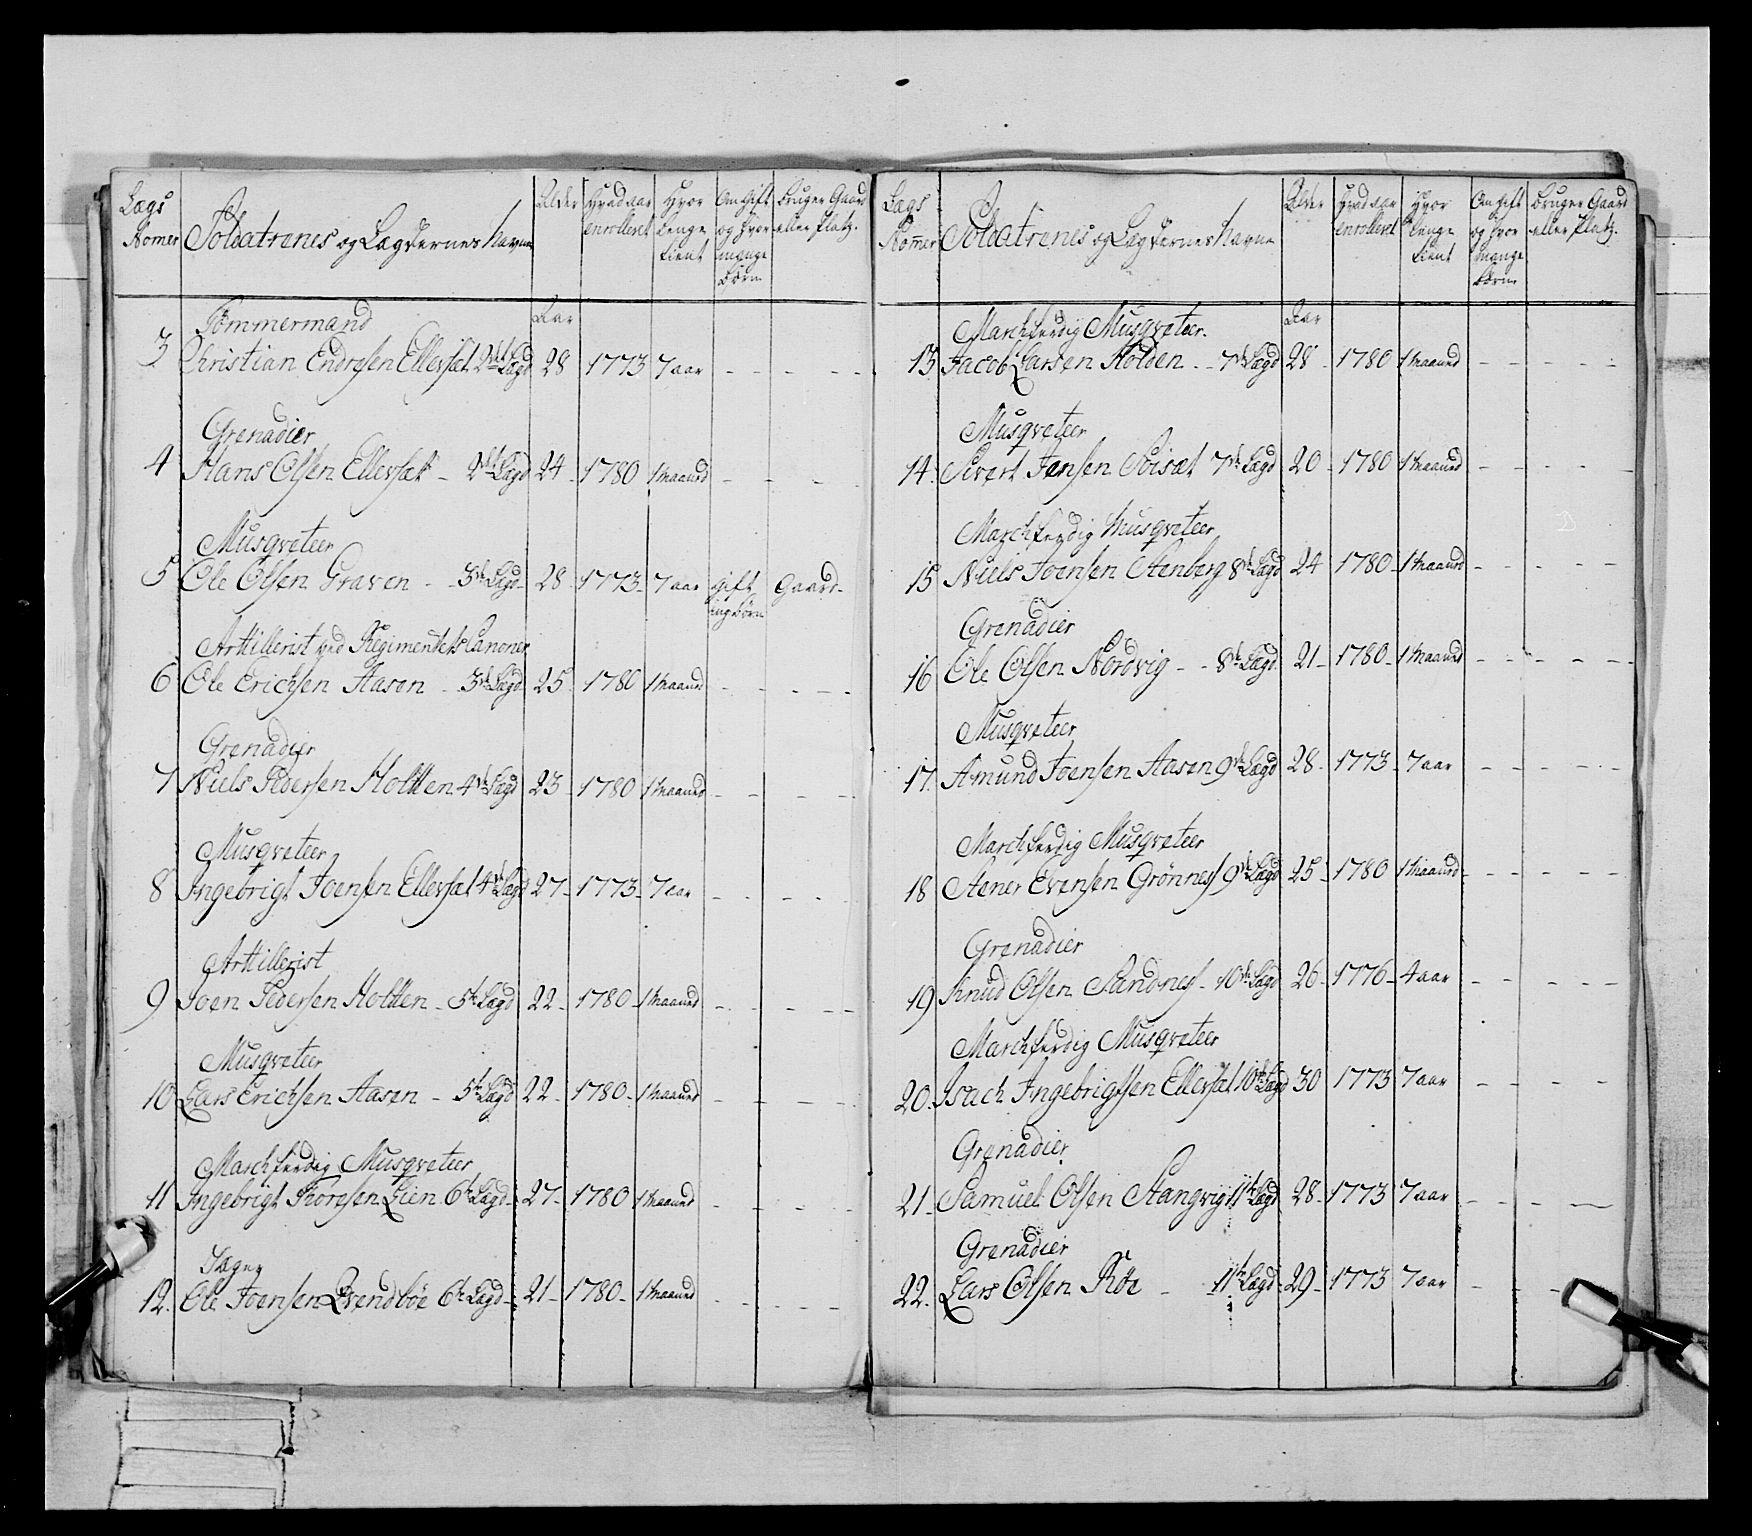 Lægs Nomer | Soldaternes og Lægdernes Navne | Alder | Hvad aar enrolleret | Hvor lenge tient | Om gift og hvor mange børn | bruger Gaard eller Platz.
Tømmermand | Aar
3 Christian Endresen Ellevset 2det Lægd 28 1773 7 aar - - - - -
Grenadier
4 Hans Olsen Ellevset - 2det Lægd 24 - 1780 1 Maaned - - - -
Musqveteer
5 Ole Olsen Graven - - 3de Lægd - 28 - 1773 - 7 aar gift Gaard -
ing børn
Arttillerist ved Regimentets Canoner
6 Ole Erichsen Aasen - 3de Lægd 25 1780 1 Maaned - - - -
Grenadier
7 Niels Pedersen Holtten 4de Lægd 23 1780 1 Maaned - - - -
Musqveteer
8 Ingebrigt Joensen Ellevset 4de Lægd 27 - 1773 - 7 aar - - - -
Arttillerist
9 Joen Pedersen Holtten - 5te Lægd 22 - 1780 - 1 Maaned - - - - -
Musqveteer
10 Lars Erichsen Aasen - 5te Lægd 22 - 1780 - 1 Maaned - - - -
Marchferdig Musqveteer
11 Ingebrigt Thoresen Lien 6te Lægd - 27 - 1780 1 Maaned - - - -
Jæger
12. Ole Joensen Qvendbøe 6te Lægd - 21 - 1780 - 1 Maaned - - - - -
Lægs Nomer | Soldaternes og Lægdernes Navne | Alder | Hvad aar enrolleret | Hvor lenge tient | Om gift og hvor mange børn | bruger Gaard eller Platz.
Marchferdig Musqveteer. | Aar
13. Jacob Larsen Holden - - 7de Lægd 28 - 1780 1 Maaned - - - - -
Musqveteer
14. Sivert Jensen 7de Lægd 20 - 1780 1 Maaned - - - - -
Marchferdig Musqveteer
15 Niels Joensen Stenberg 8de Lægd 24 1780 - 1 Maaned - - - - -
Grenadier
16 Ole Olsen Nordvig - - 8de Lægd. 21 - 1780 - 1 Maaned - - - - -
Musqveteer
17. Amund Joensen Aasen 9de Lægd 28 - 1773 - 7 aar - - - - -
Marchferdig Musqveteer
18 Stener Evensen Grønnes 9de Lægd 25 - 1780 1 Maaned - - - - -
Grenadier
19 Knud Olsen Sandnes - 10de Lægd 26 - 1776 - 4 aar - - - - -
Marchferdig Musqveteer
20. Isach Ingebrigtsen Ellevset 10de Lægd 30 1773 7 aar - - - -
Grenadier
21. Samuel Olsen Stangvig 11te Lægd 28 - 1773 7 aar - - - -
Grenadier
22. Lars Olsen Røe - 11te Lægd 29 - 1773 7 aar - - -